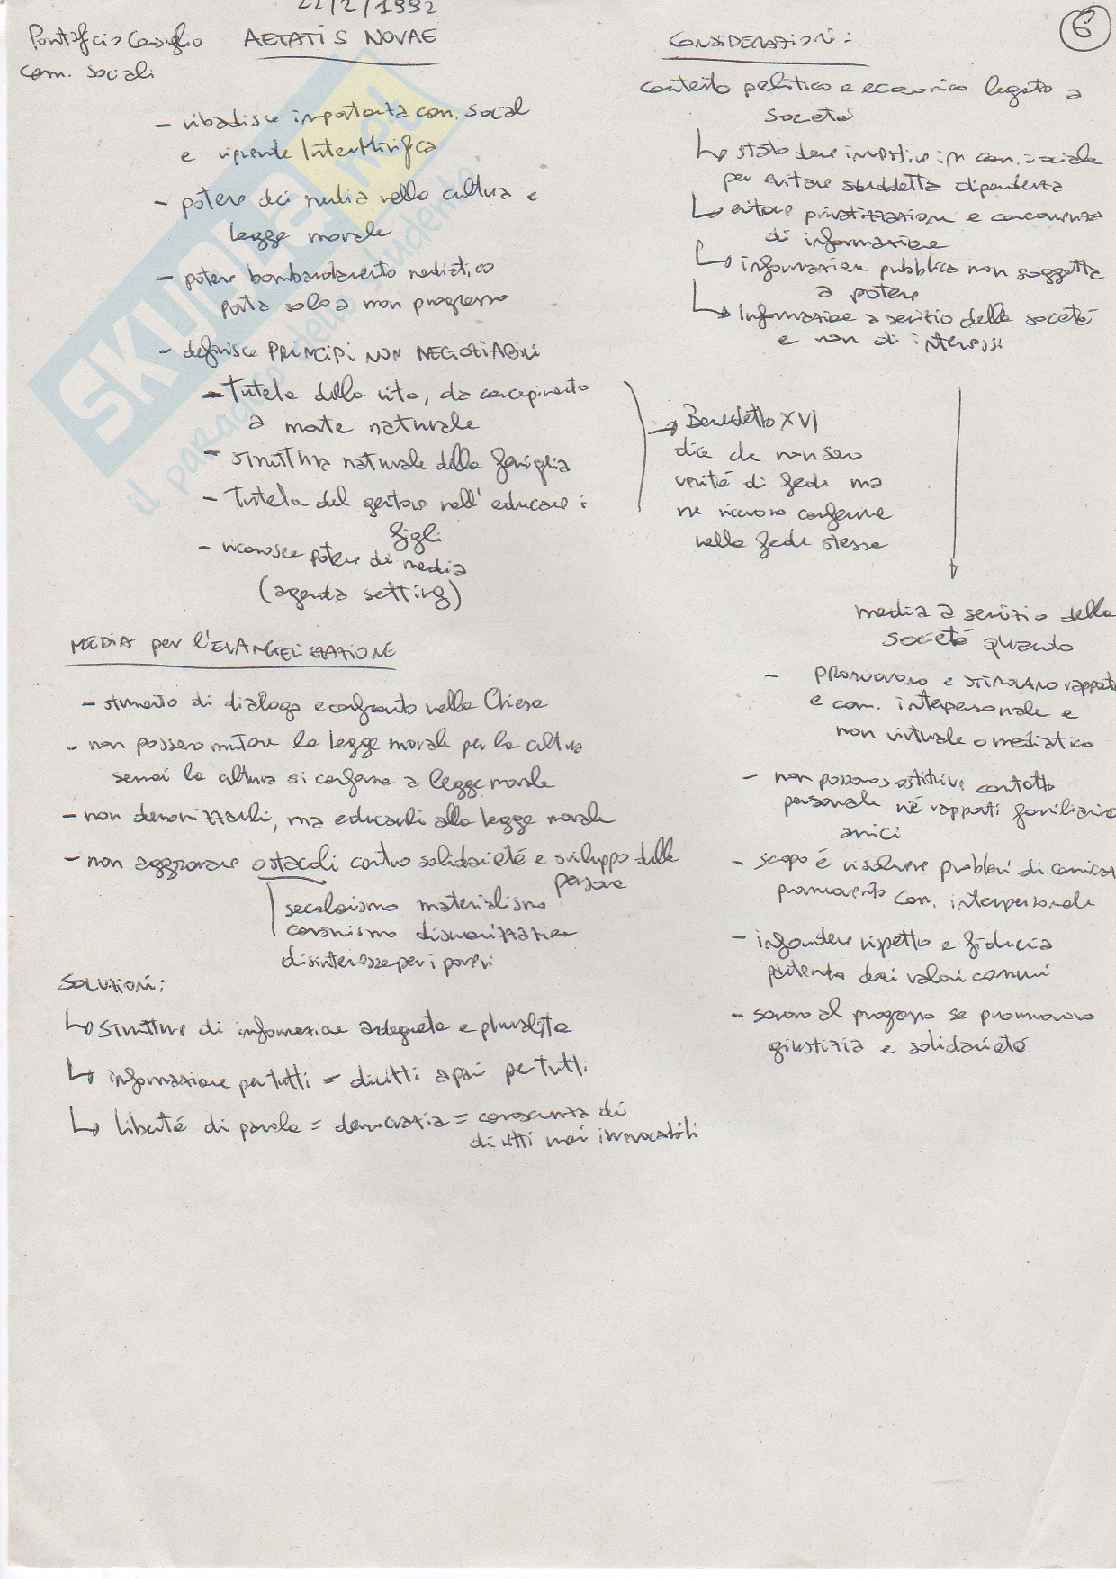 22/2/1992
Pontificio Consiglio AETATIS NOVAE
com. sociali
- ribadisce importanza com. social
e riprende InterMirifica
- potere dei media nella cultura e
legge morale
- potere bombardamento mediatico
porta solo a non progresso
- definisce PRINCIPI NON NEGOZIABILI
- Tutela della vita, da concepimento
a morte naturale
- struttura naturale della famiglia
- Tutela del genitore nell'educare i
figli
- riconosce potere di media
(agenda setting)
MEDIA per l'EVANGELIZZAZIONE
- strumento di dialogo e confronto nella Chiesa
- non possono mutare la legge morale per la cultura
semai la cultura si conforma a legge morale
- non demonizzarli, ma educarli alla legge morale
- non aggravare ostacoli contro solidarietà e sviluppo della
persona
secolarismo materialismo
consumismo disumanizzazione
disinteresse per i poveri
SOLUZIONI:
↳ strutture di informazione adeguate e pluraliste
↳ informazione per tutti = diritti a pari per tutti
↳ libertà di parola = democrazia = conoscenza dei
diritti mai irrevocabili
6
CONSIDERAZIONI:
contesto politico e economico legato a
società
↳ stato deve investire in com. sociale
per evitare suddetta dipendenza
↳ evitare privatizzazioni e concorrenza
di informazione
↳ informazione pubblica non soggetta
a potere
↳ Informazione a servizio della società
e non di interessi
→ Benedetto XVI
dice che non sono
verità di fede ma
ne ricevono conferme
nella fede stessa
media a servizio della
società quando
- promuovono e stimolano rapporti
e com. interpersonale e
non virtuale o mediatico
- non possono sostituire contatto
personale né rapporti familiari o
amici
- scopo è risolvere problemi di comicaz
promuovendo com. interpersonale
- infondere rispetto e fiducia
partendo dai valori comuni
- sono al progresso se promuovono
giustizia e solidarietà
SKUOLA.net
il paradiso dello studente